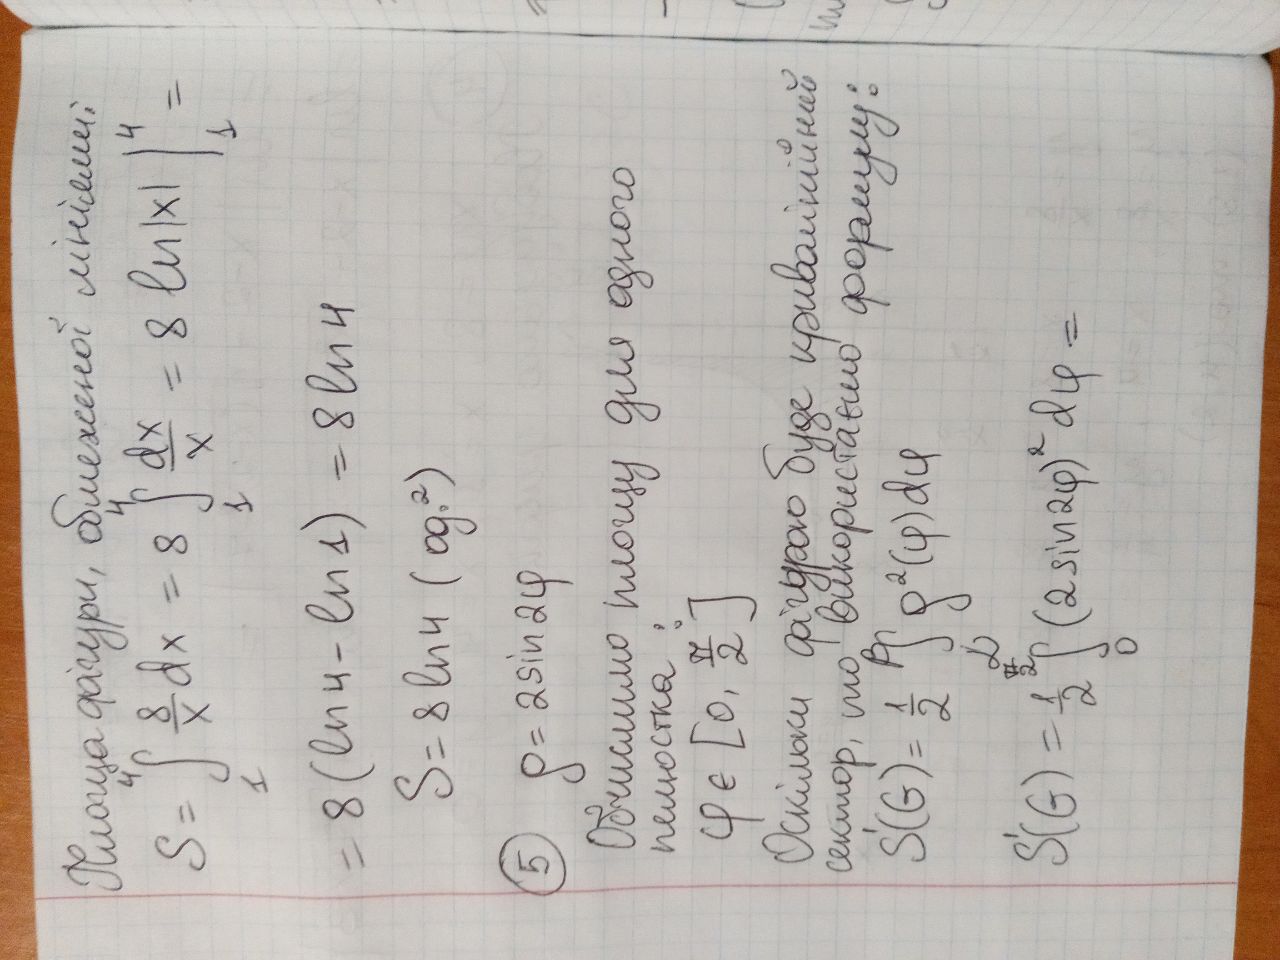 Площа фігури, обмеженої лініями:
S = ∫₁⁴ 8/x dx = 8 ∫₁⁴ dx/x = 8 ln|x| |₁⁴ =
= 8(ln4 - ln1) = 8ln4
S = 8ln4 (од.²)
5 ρ = 2sin2φ
Обчислимо площу для одного
пелюстка:
φ ϵ [0, π/2]
Оскільки фігурою буде криволінійний
сектор, то використаємо формулу:
S'(G) = 1/2 ∫_α^β ρ²(φ)dφ
S'(G) = 1/2 ∫₀^(π/2) (2sin2φ)² dφ =